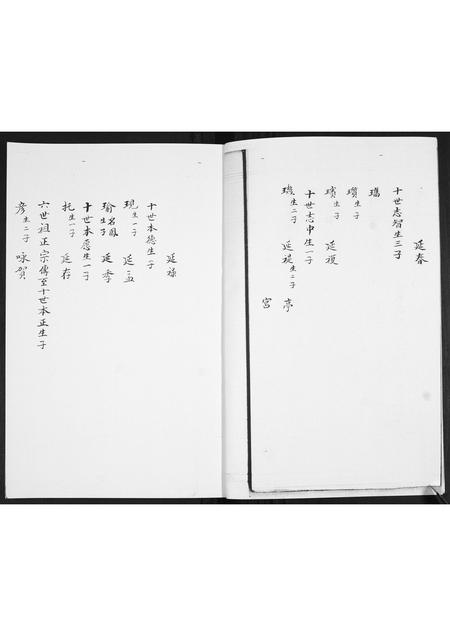 延春
十世志智生三子
璠
瓚生子
璸生子 延複
十世志中生一子
璣生二子 延禔生二子 亭
宮
延祿
十世本德生子
現生一子 延孟
瑜名鳳生子 延季
十世本應生一子
托生一子 延存
六世祖正宗傳至十世本正生子
彥生二子 咏賀